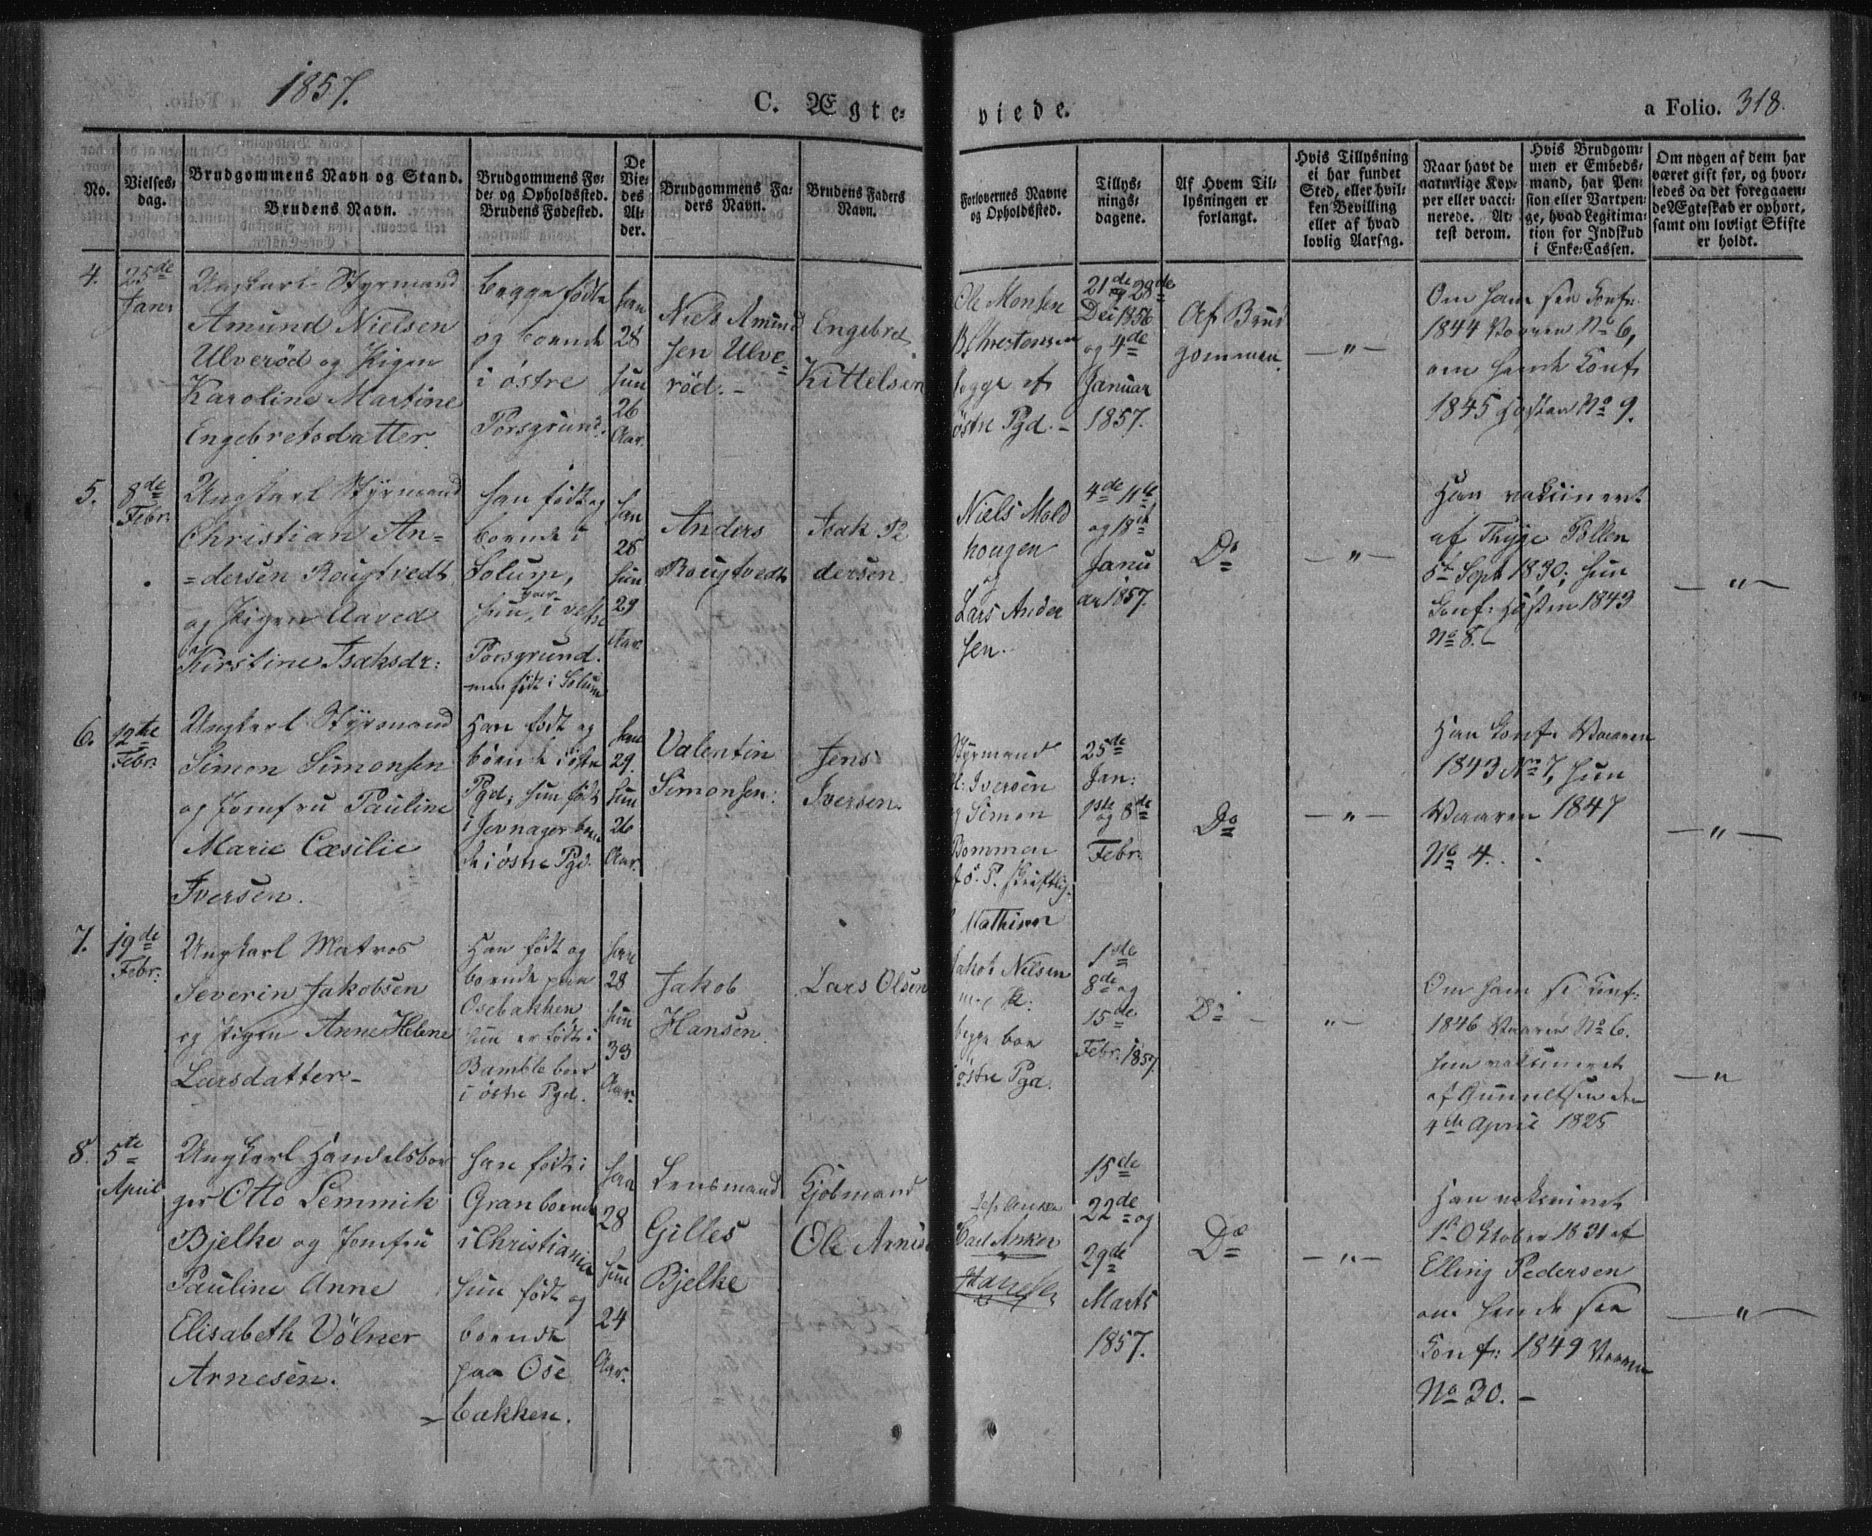 1857.
C. Ægte-
viede.
a Folio. 318.
No.
Vielses-
dag.
Brudgommens Navn og Stand.
Brudens Navn.
Brudgommens Fø-
de- og Opholdssted.
Brudens Fødested.
De
Vie-
des
Al-
der.
Brudgommens Fa-
ders Navn.
Brudens Faders
Navn.
Forlovernes Navne
og Opholdssted.
Tillys-
nings-
dagene.
Af Hvem Til-
lysningen er
forlangt.
Hvis Tillysning
ei har fundet
Sted, eller hvil-
ken Bevilling
eller af hvad
lovlig Aarsag.
Naar havt de
naturlige Kop-
per eller vacci-
nerede. At-
test derom.
Hvis Brudgom-
men er Embeds-
mand, har Pen-
sion eller Vartpen-
ge, hvad Legitima-
tion for Indskud
i Enke-Cassen.
Om nogen af dem har
været gift før, og hvor-
ledes da det foregaaen-
de Ægteskab er ophørt,
samt om lovligt Skifte
er holdt.
4.
25de
Janr
Ungkarl Styrmand
Amund Nielsen
Ulverød og Pigen
Karoline Martine
Engebretsdatter
begge fødte
og boende
i østre
Porsgrund.
han
28
hun
26
Aar.
Niels Amund
sen Ulve-
rød.-
Engebret
Kittelsen
Ole Monsen
B. Chrestensen
begge af
østre Pgd.-
21de og 28de
Dec 1856
og 4de
Januar
1857.
Af Brud
gommen
-"-
Om ham see Conf:
1844 Vaaren No 6,
om hende Conf.
1845 Høsten No 9.
5.
8de
Febr:
Ungkarl Styrmand
Christian An-
dersen Rougtvedt
og Pigen Aaved
Kirstine Isaksdr:
Han født og
boende i
Solum,
hun, boer i vestre
Porsgrund.
men født i Solum
han
28
hun
29
Aar
Anders
Rougtvedt
Isak Pe
dersen
Niels Mold
hougen
og
Lars Ander
sen.
4de 11te
og 18de
Janu
ar 1857.
Do
-"-
Han vaksineret
af Thyge Tollen
Sept 1830; hun
Conf: Høsten 1843
No 8.-
-"-
6.
12te
Febr:
Ungkarl Styrmand
Simon Simonsen
og Jomfru Pauline
Marie Cæsilie
Iversen.
Han født og
boende i østre
Pgd; hun født
i Jevnager boen
de i østre Pgd.
han
29.
hun
26
Aar.
Valentin
Simonsen:
Jens
Iversen.
Styrmand
Iversen
og Simon
Bommen
Mathisen
25de
Jan:
1ste og 8de
Febr:
Do
-"-
Han Conf. Vaaren
1843 No 7, hun
Vaaren 1847
No 4.
-"-
7.
19de
Febr:
Ungkarl Matros
Severin Jakobsen
og Pigen Anne Helene
Larsdatter-
Han født og
boende paa
Osebakken,
hun er født i
Bamble boer
i østre Pgd.
han
28
hun
33
Aar.
Jakob
Hansen.
Lars Olsen
Jakob Nilsen
begge boe
i østre Pgd.
1ste
8de og
15de
Febr. 1857.
Do
-"-
Om ham se Conf:
1846 Vaaren No 6.
hun vaksineret
af Gunneltsen den
4de April 1825
-"
8.
5te
April
Ungkarl Handelsbor
ger Otto Lemmik
Bjelke og Jomfru
Pauline Anne
Elisabeth Vølner
Arnesen.
han født i
Gran boende
i Christiania
hun født og
boende
paa Ose
bakken.
han
28
hun
24
Aar.
Lensmand
Gilles
Bjelke
Kjøbmand
Ole Arnesen
Carl Anker
15de
22de og
29de
Marts
1857.
Do
-"-
Han vaksineret
1ste Oktober 1831 af
Elling Pedersen
om hende see
Conf: 1849 Vaaren
No 30.-
-"-